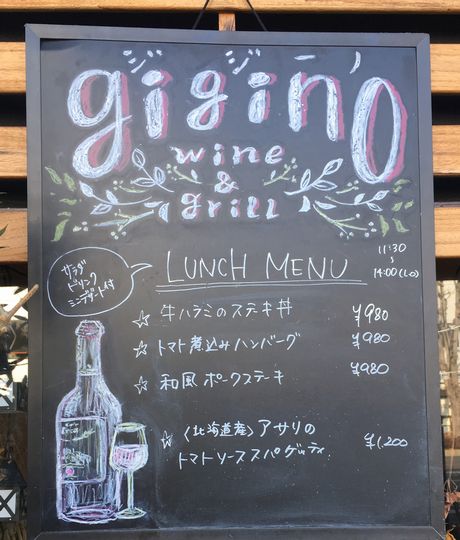 ジジーノ
gigin'o
wine
&
grill
11:30
~
14:00(Lo)
サラダ
ドリンク
ミニデザート付
LUNCH MENU
☆ 牛ハラミのステキ丼 ¥980
☆ トマト煮込みハンバーグ ¥980
☆ 和風ポークステーキ ¥980
☆ 〈北海道産〉アサリの
トマトソーススパゲッティ. ¥1,200